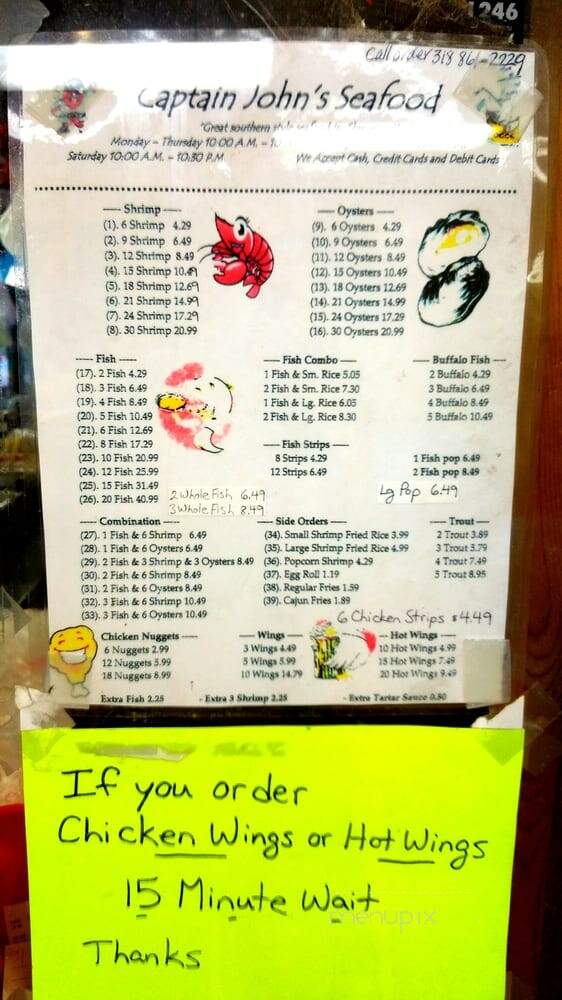 1246
Call order 318 861-2229
Captain John's Seafood
"Great southern style
Monday - Thursday 10:00 A.M. -
Saturday 10:00 A.M. - 10:30 P.M We Accept Cash, Credit Cards and Debit Cards
---- Shrimp ----
(1). 6 Shrimp 4.29
(2). 9 Shrimp 6.49
(3). 12 Shrimp 8.49
(4). 15 Shrimp 10.49
(5). 18 Shrimp 12.69
(6). 21 Shrimp 14.99
(7). 24 Shrimp 17.29
(8). 30 Shrimp 20.99
---- Oysters ----
(9). 6 Oysters 4.29
(10). 9 Oysters 6.49
(11). 12 Oysters 8.49
(12). 15 Oysters 10.49
(13). 18 Oysters 12.69
(14). 21 Oysters 14.99
(15). 24 Oysters 17.29
(16). 30 Oysters 20.99
----- Fish -----
(17). 2 Fish 4.29
(18). 3 Fish 6.49
(19). 4 Fish 8.49
(20). 5 Fish 10.49
(21). 6 Fish 12.69
(22). 8 Fish 17.29
(23). 10 Fish 20.99
(24). 12 Fish 25.99
(25). 15 Fish 31.49
(26). 20 Fish 40.99
2 Whole Fish 6.49
3 Whole Fish 8.49
---- Fish Combo ----
1 Fish & Sm. Rice 5.05
2 Fish & Sm. Rice 7.30
1 Fish & Lg. Rice 6.05
2 Fish & Lg. Rice 8.30
---- Buffalo Fish ----
2 Buffalo 4.29
3 Buffalo 6.49
4 Buffalo 8.49
5 Buffalo 10.49
---- Fish Strips ----
8 Strips 4.29
12 Strips 6.49
1 Fish pop 6.49
2 Fish pop 8.49
Lg Pop 6.49
---- Combination ----
(27). 1 Fish & 6 Shrimp 6.49
(28). 1 Fish & 6 Oysters 6.49
(29). 2 Fish & 3 Shrimp & 3 Oysters 8.49
(30). 2 Fish & 6 Shrimp 8.49
(31). 2 Fish & 6 Oysters 8.49
(32). 3 Fish & 6 Shrimp 10.49
(33). 3 Fish & 6 Oysters 10.49
---- Side Orders ----
(34). Small Shrimp Fried Rice 3.99
(35). Large Shrimp Fried Rice 4.99
(36). Popcorn Shrimp 4.29
(37). Egg Roll 1.19
(38). Regular Fries 1.59
(39). Cajun Fries 1.89
---- Trout ----
2 Trout 3.89
3 Trout 5.79
4 Trout 7.49
5 Trout 8.95
6 Chicken Strips $4.49
Chicken Nuggets
6 Nuggets 2.99
12 Nuggets 5.99
18 Nuggets 8.99
---- Wings ----
3 Wings 4.49
5 Wings 5.99
10 Wings 14.79
---- Hot Wings ----
10 Hot Wings 4.99
15 Hot Wings 7.49
20 Hot Wings 9.49
Extra Fish 2.25 - Extra 3 Shrimp 2.25 - Extra Tartar Sauce 0.50
If you order
Chicken Wings or Hot Wings
15 Minute Wait
Thanks
menupix